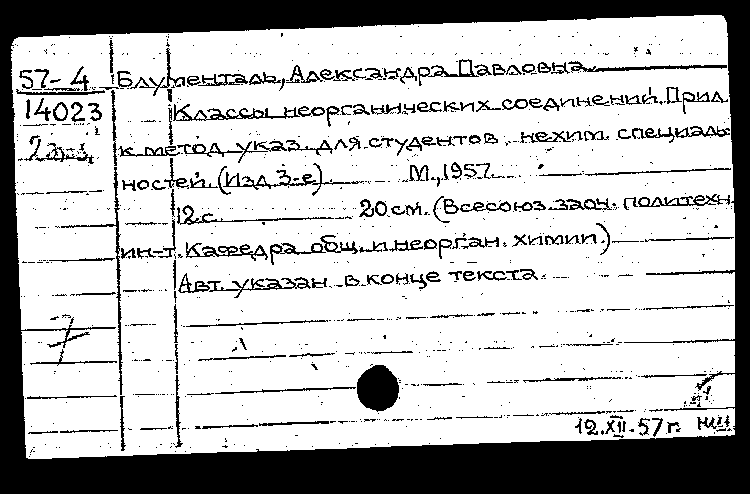 57-4 Блументаль, Александра Павловна.
14023 Классы неорганических соединений. Прил.
2 экз. к метод. указ. для студентов нехим. специаль-
ностей. (Изд. 3-е). М., 1957.
12 с. 20 см. (Всесоюз. заоч. политехн.
ин-т. Кафедра общ. и неорган. химии)
Авт. указан в конце текста.
7
12.XII.57 г.